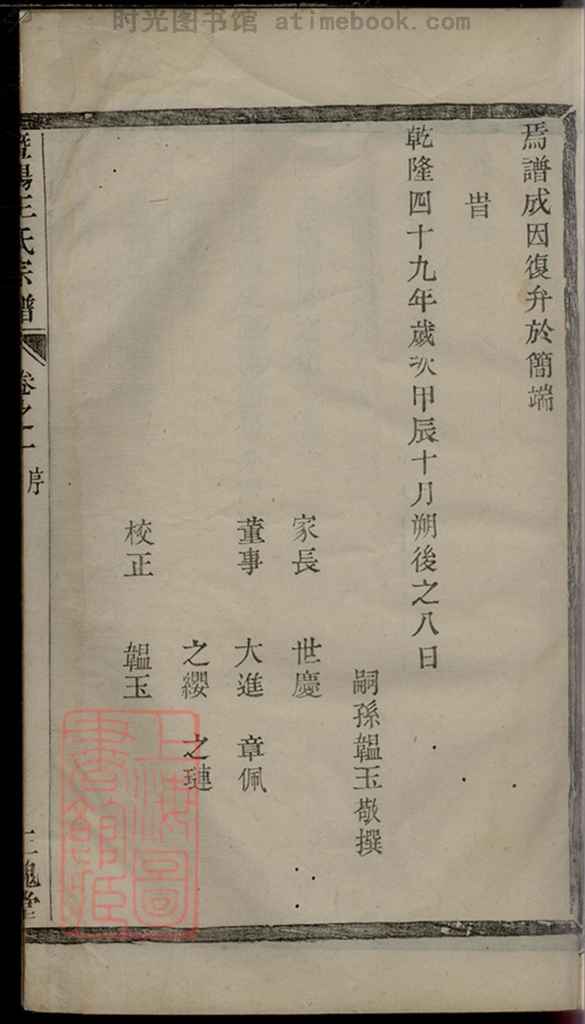 时光图书馆 atimebook.com
焉譜成因復弁於簡端
旹
乾隆四十九年歲次甲辰十月朔後之八日
嗣孫韞玉敬撰
家長 世慶
董事 大進 章佩
之纓 之璉
校正 韞玉
暨陽王氏宗譜 卷之一 序 三槐堂
上海圖書館藏